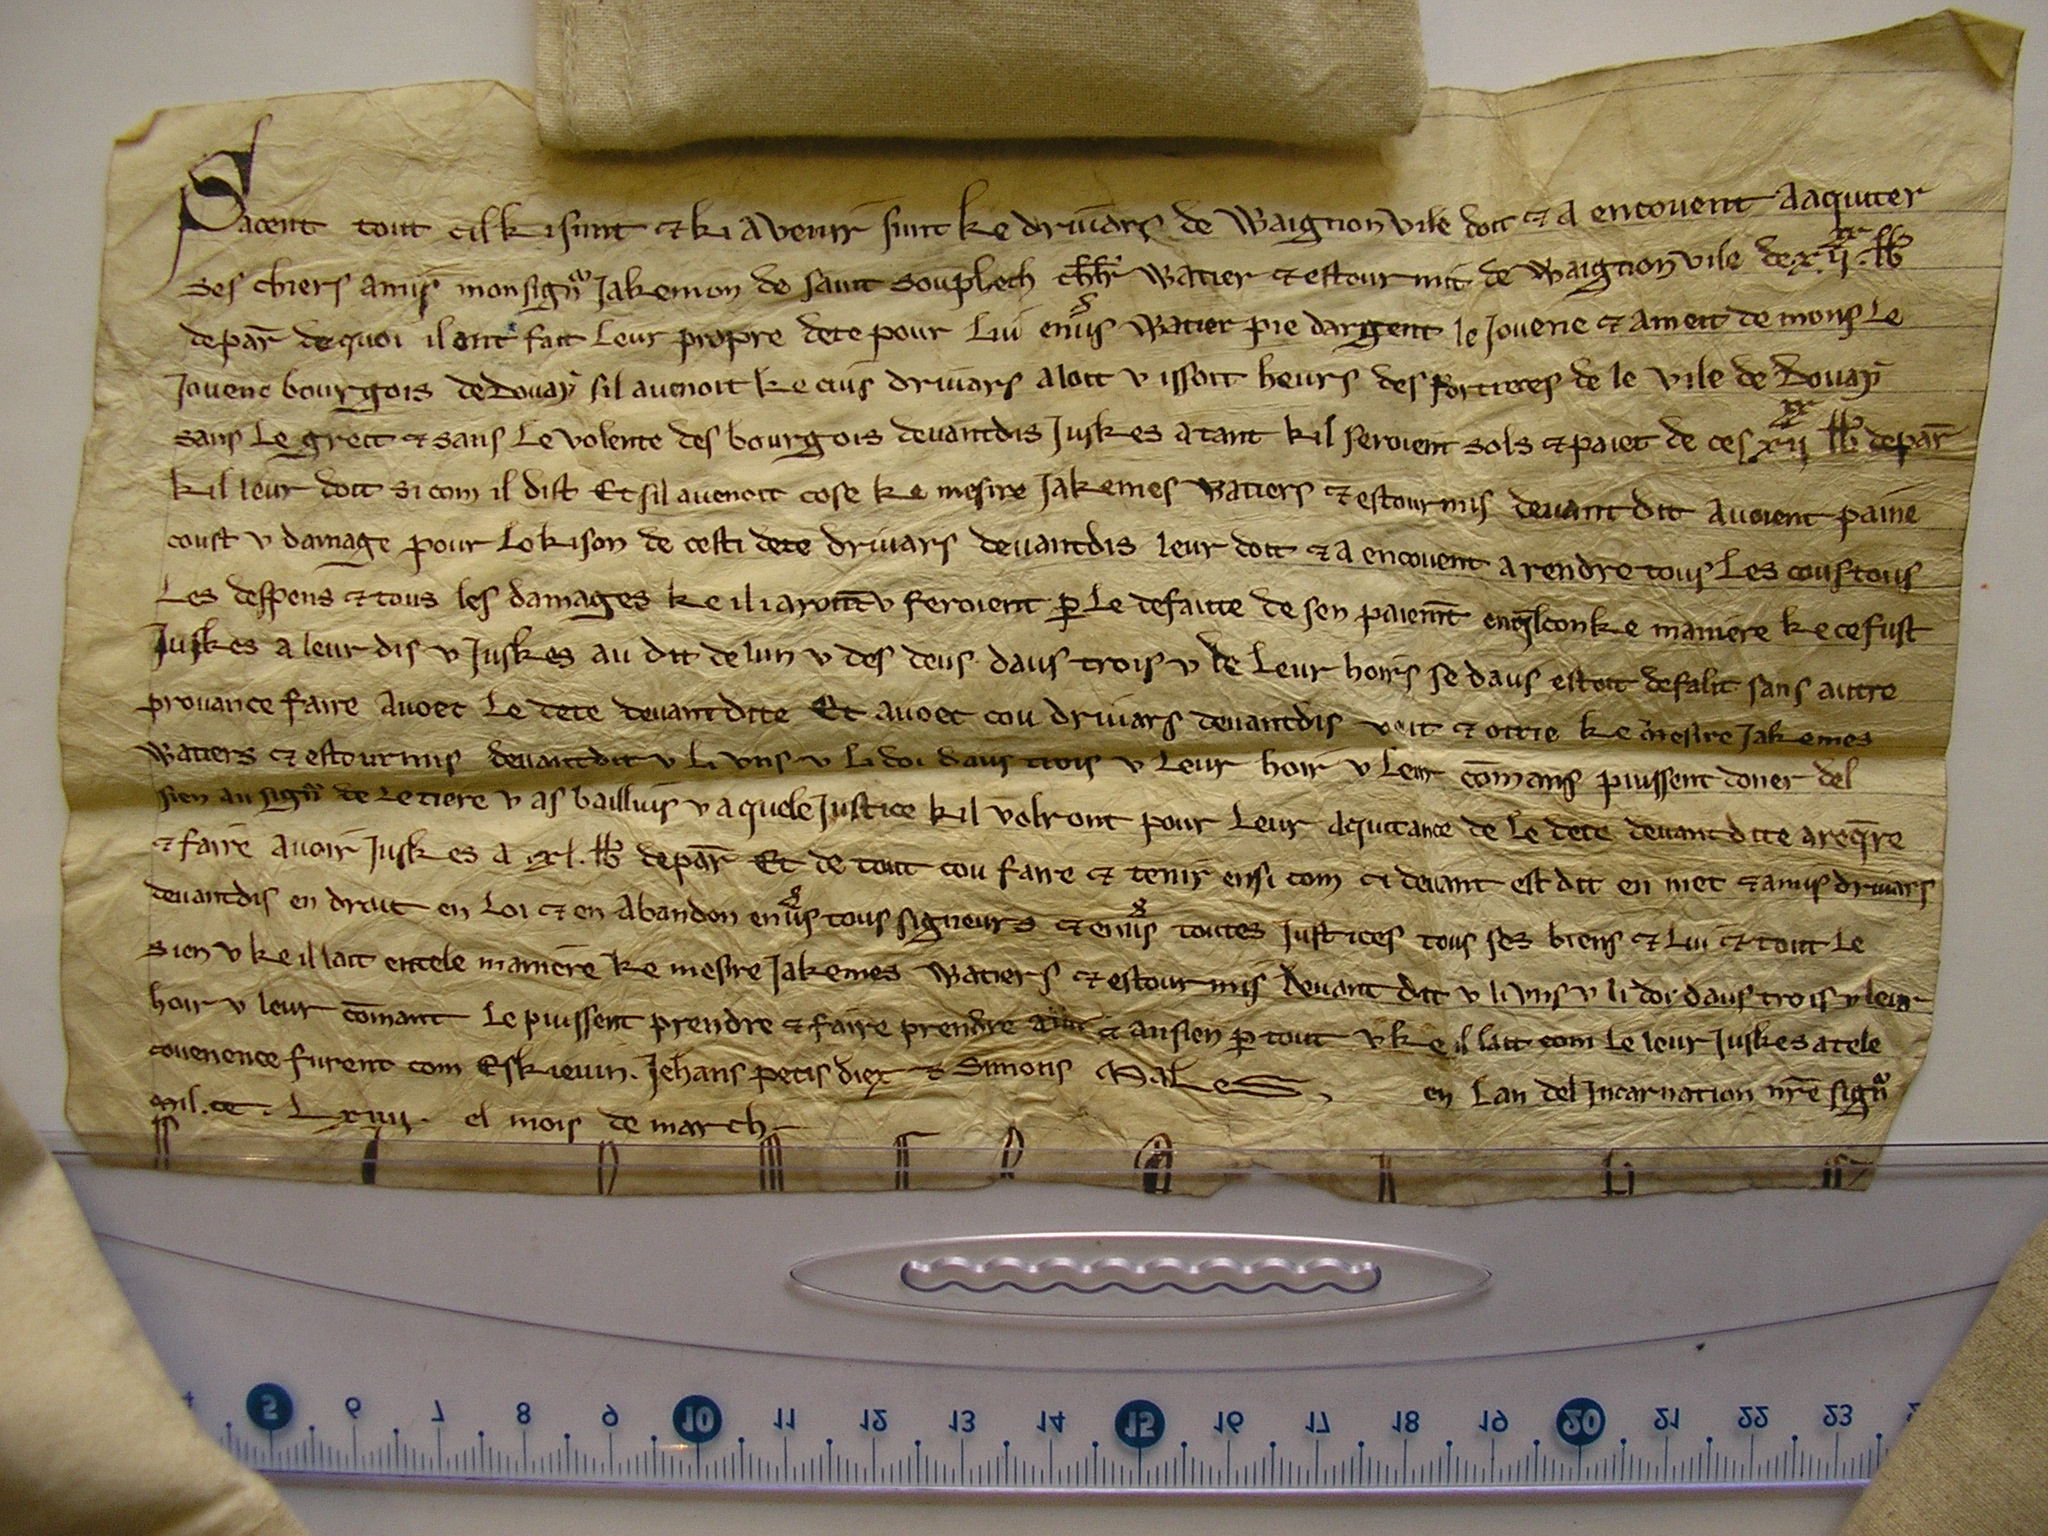 Sacent tout cil ki sunt ⁊ ki avenir sunt ke druiars de Waignonvile doit ⁊ a encovent a aquiter
ses chiers amis monsign̄ Jakemon de saint souplech ch̄lr watier ⁊ estourmit de Waignonvile de .xii. lb
de par̄ de quoi il ont fait leur propre dete pour lui env̄s Watier pie dargent le Jouene ⁊ Ameit de mons le
Jouene bourgois de Douay sil auenoit ke cius druiars aloit v issoit heurs des forterces de le vile de Douay
sans le greit ⁊ sans le volente des bourgois deuantdis Juskes a tant kil seroient sols ⁊ paiet de ces xii lb de par̄
kil leur doit si com il dist Et sil auenoit cose ke mesire Jakemes Watiers ⁊ estourmis deuant dit auoient paine
coust v damage pour lokison de cesti dete druiars deuantdis leur doit ⁊ a encouent a rendre tous les cous tous
les despens ⁊ tous les damages ke il i aroient v feroient p̱ le defaute de sen paiem̄t en q̄lconke maniere ke ce fust
Juskes a leur dis v Juskes au dit de lun v des deus daus trois v de leur hoirs se daus estoit defalit sans autre
prouance faire auoec le dete deuant dite Et auoec cou druiars deuantdis veut ⁊ otrie ke mesire Jakemes
Watiers ⁊ estourmis deuant dit v li vns v li doi daus trois v leur hoir v leur com̄ans puissent doner del
sien au sign̄ de le tiere v as baillius v a quele Justice kil volront pour leur aquitance de le dete deuant dite a req̄re
⁊ faire auoir Juskes a .xl. lb de par̄ Et de tout cou faire ⁊ tenir ensi com ci deuant est dit en met ⁊ a mis druiars
deuantdis en droit en loi ⁊ en abandon env̄s tous signeurs ⁊ env̄s toutes Justices tous ses biens ⁊ lui ⁊ tout le
sien v ke il lait en tele maniere ke mesire Jakemes Watiers ⁊ estourmis deuant dit v li vns v li doi daus trois v leur
hoir v leur com̄ant le puissent prendre ⁊ faire prendre ⁊ au sien p̱ tout v ke il lait com le leur Juskes a tele
couenence furent com Eskieuin. Jehans petis diex ⁊ Simons Males, en lan del Incarnation nr̄e sign̄
mil. cc. Lxiiii. el mois de march.